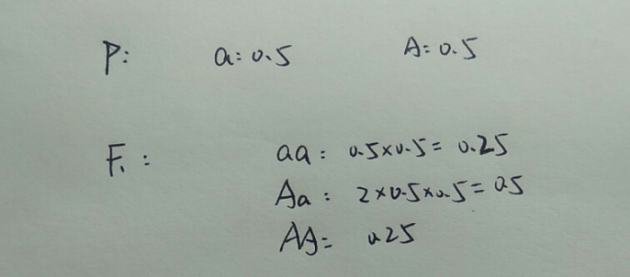 P: a:0.5 A:0.5
F₁: aa: 0.5×0.5= 0.25
Aa: 2×0.5×0.5= 0.5
AA= 0.25